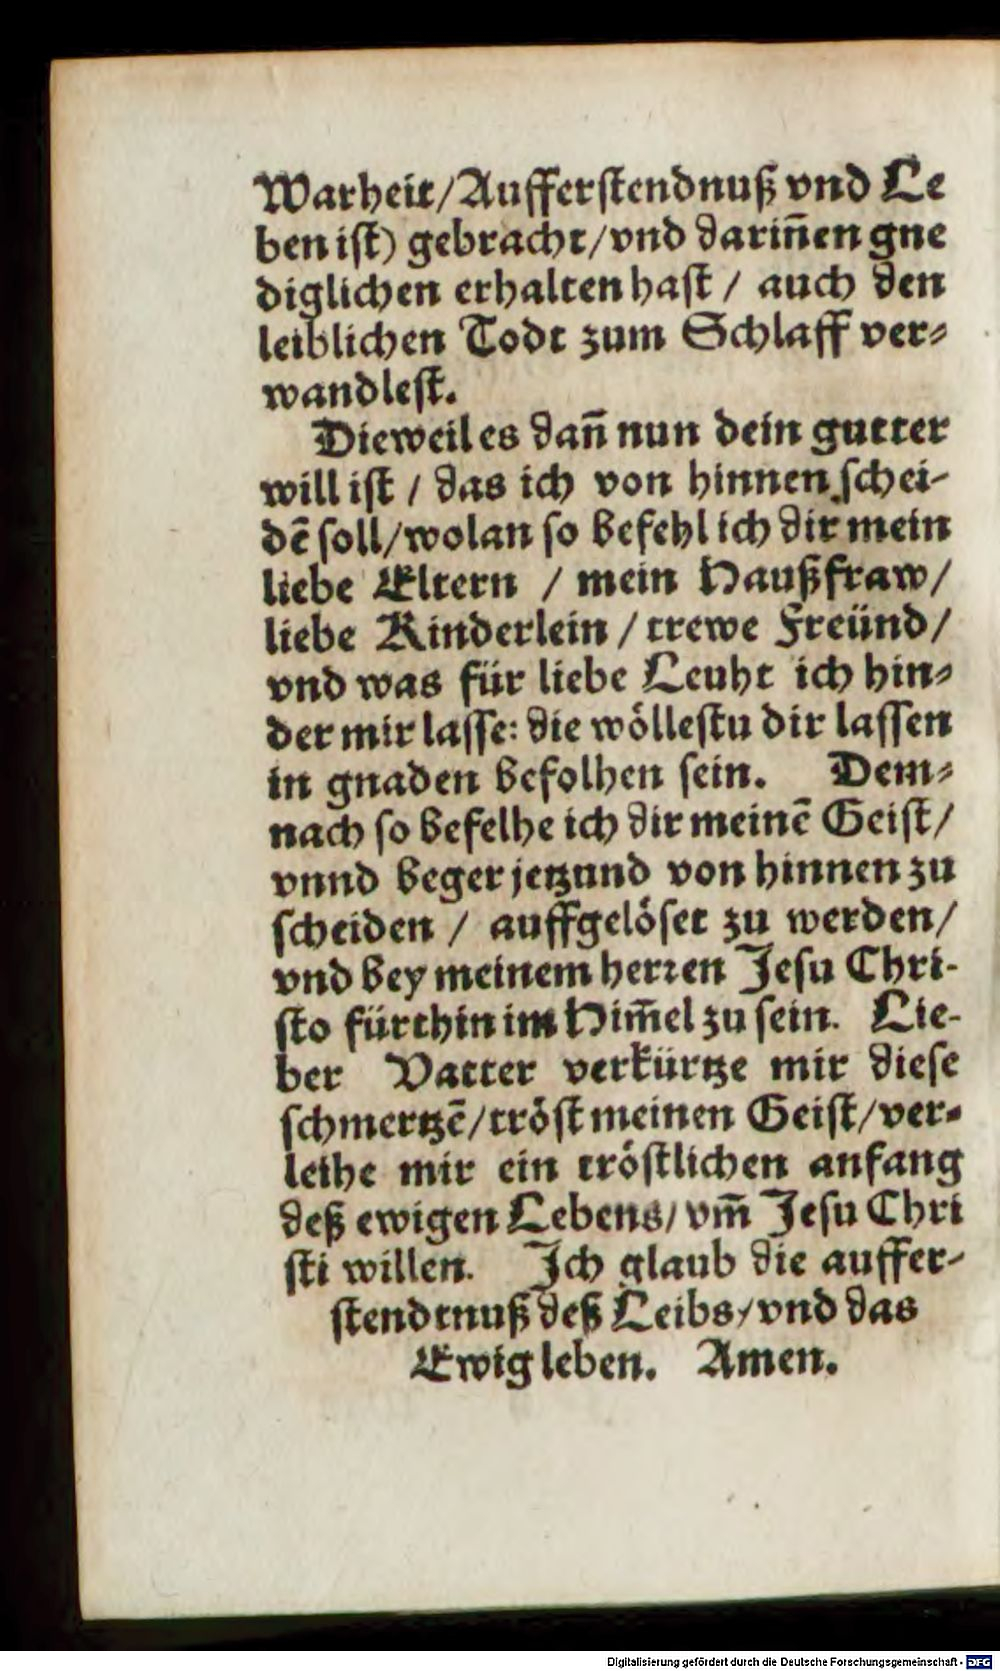 Warheit/Aufferſtendnuß vnd Le
ben iſt) gebracht/vnd darin̄en gne
diglichen erhalten haſt / auch den
leiblichen Todt zum Schlaff ver⸗
wandleſt.
Dieweil es dan̄ nun dein gutter
will iſt / das ich von hinnen ſchei-
dē ſoll/wolan ſo befehl ich dir mein
liebe Eltern / mein Haußfraw/
liebe Kinderlein / trewe Freünd/
vnd was für liebe Leuht ich hin⸗
der mir laſſe: die wölleſtu dir laſſen
in gnaden befolhen ſein. Dem⸗
nach ſo befelhe ich dir meinē Geiſt/
vnnd beger jetzund von hinnen zu
ſcheiden / auffgelöſet zu werden/
vnd bey meinem herꝛen Jeſu Chri-
ſto fürthin im Him̄el zu ſein. Lie-
ber Vatter verkürtze mir dieſe
ſchmertzē/tröſt meinen Geiſt/ver⸗
leihe mir ein tröſtlichen anfang
deß ewigen Lebens/vm̄ Jeſu Chri
ſti willen. Ich glaub die auffer-
ſtendtnuß deß Leibs/vnd das
Ewig leben. Amen.
Digitalisierung gefördert durch die Deutsche Forschungsgemeinschaft - DFG